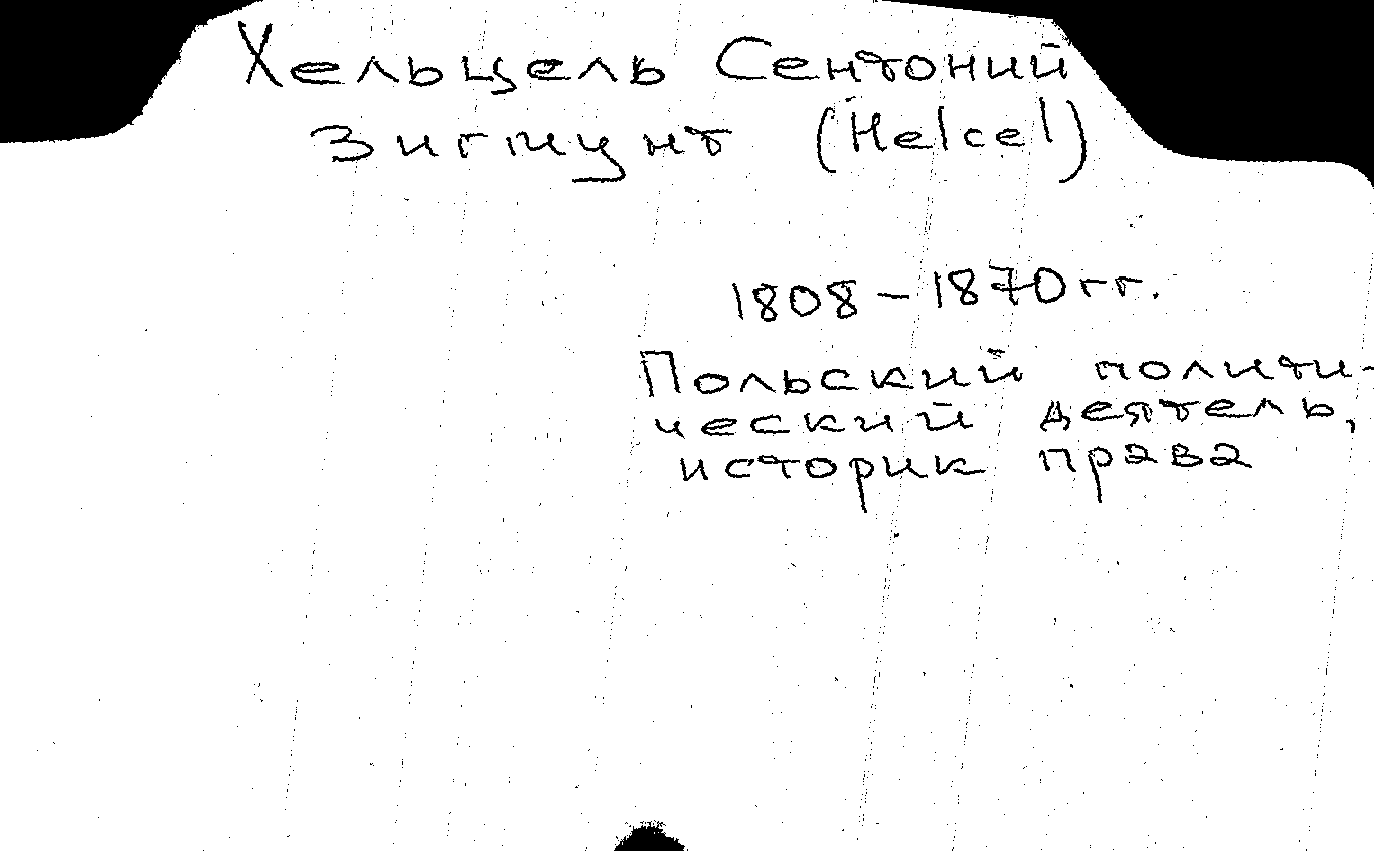 Хельцель Сентоний
Зигмунт (Helcel)
1808 – 1870 гг.
Польский полити-
ческий деятель,
историк права